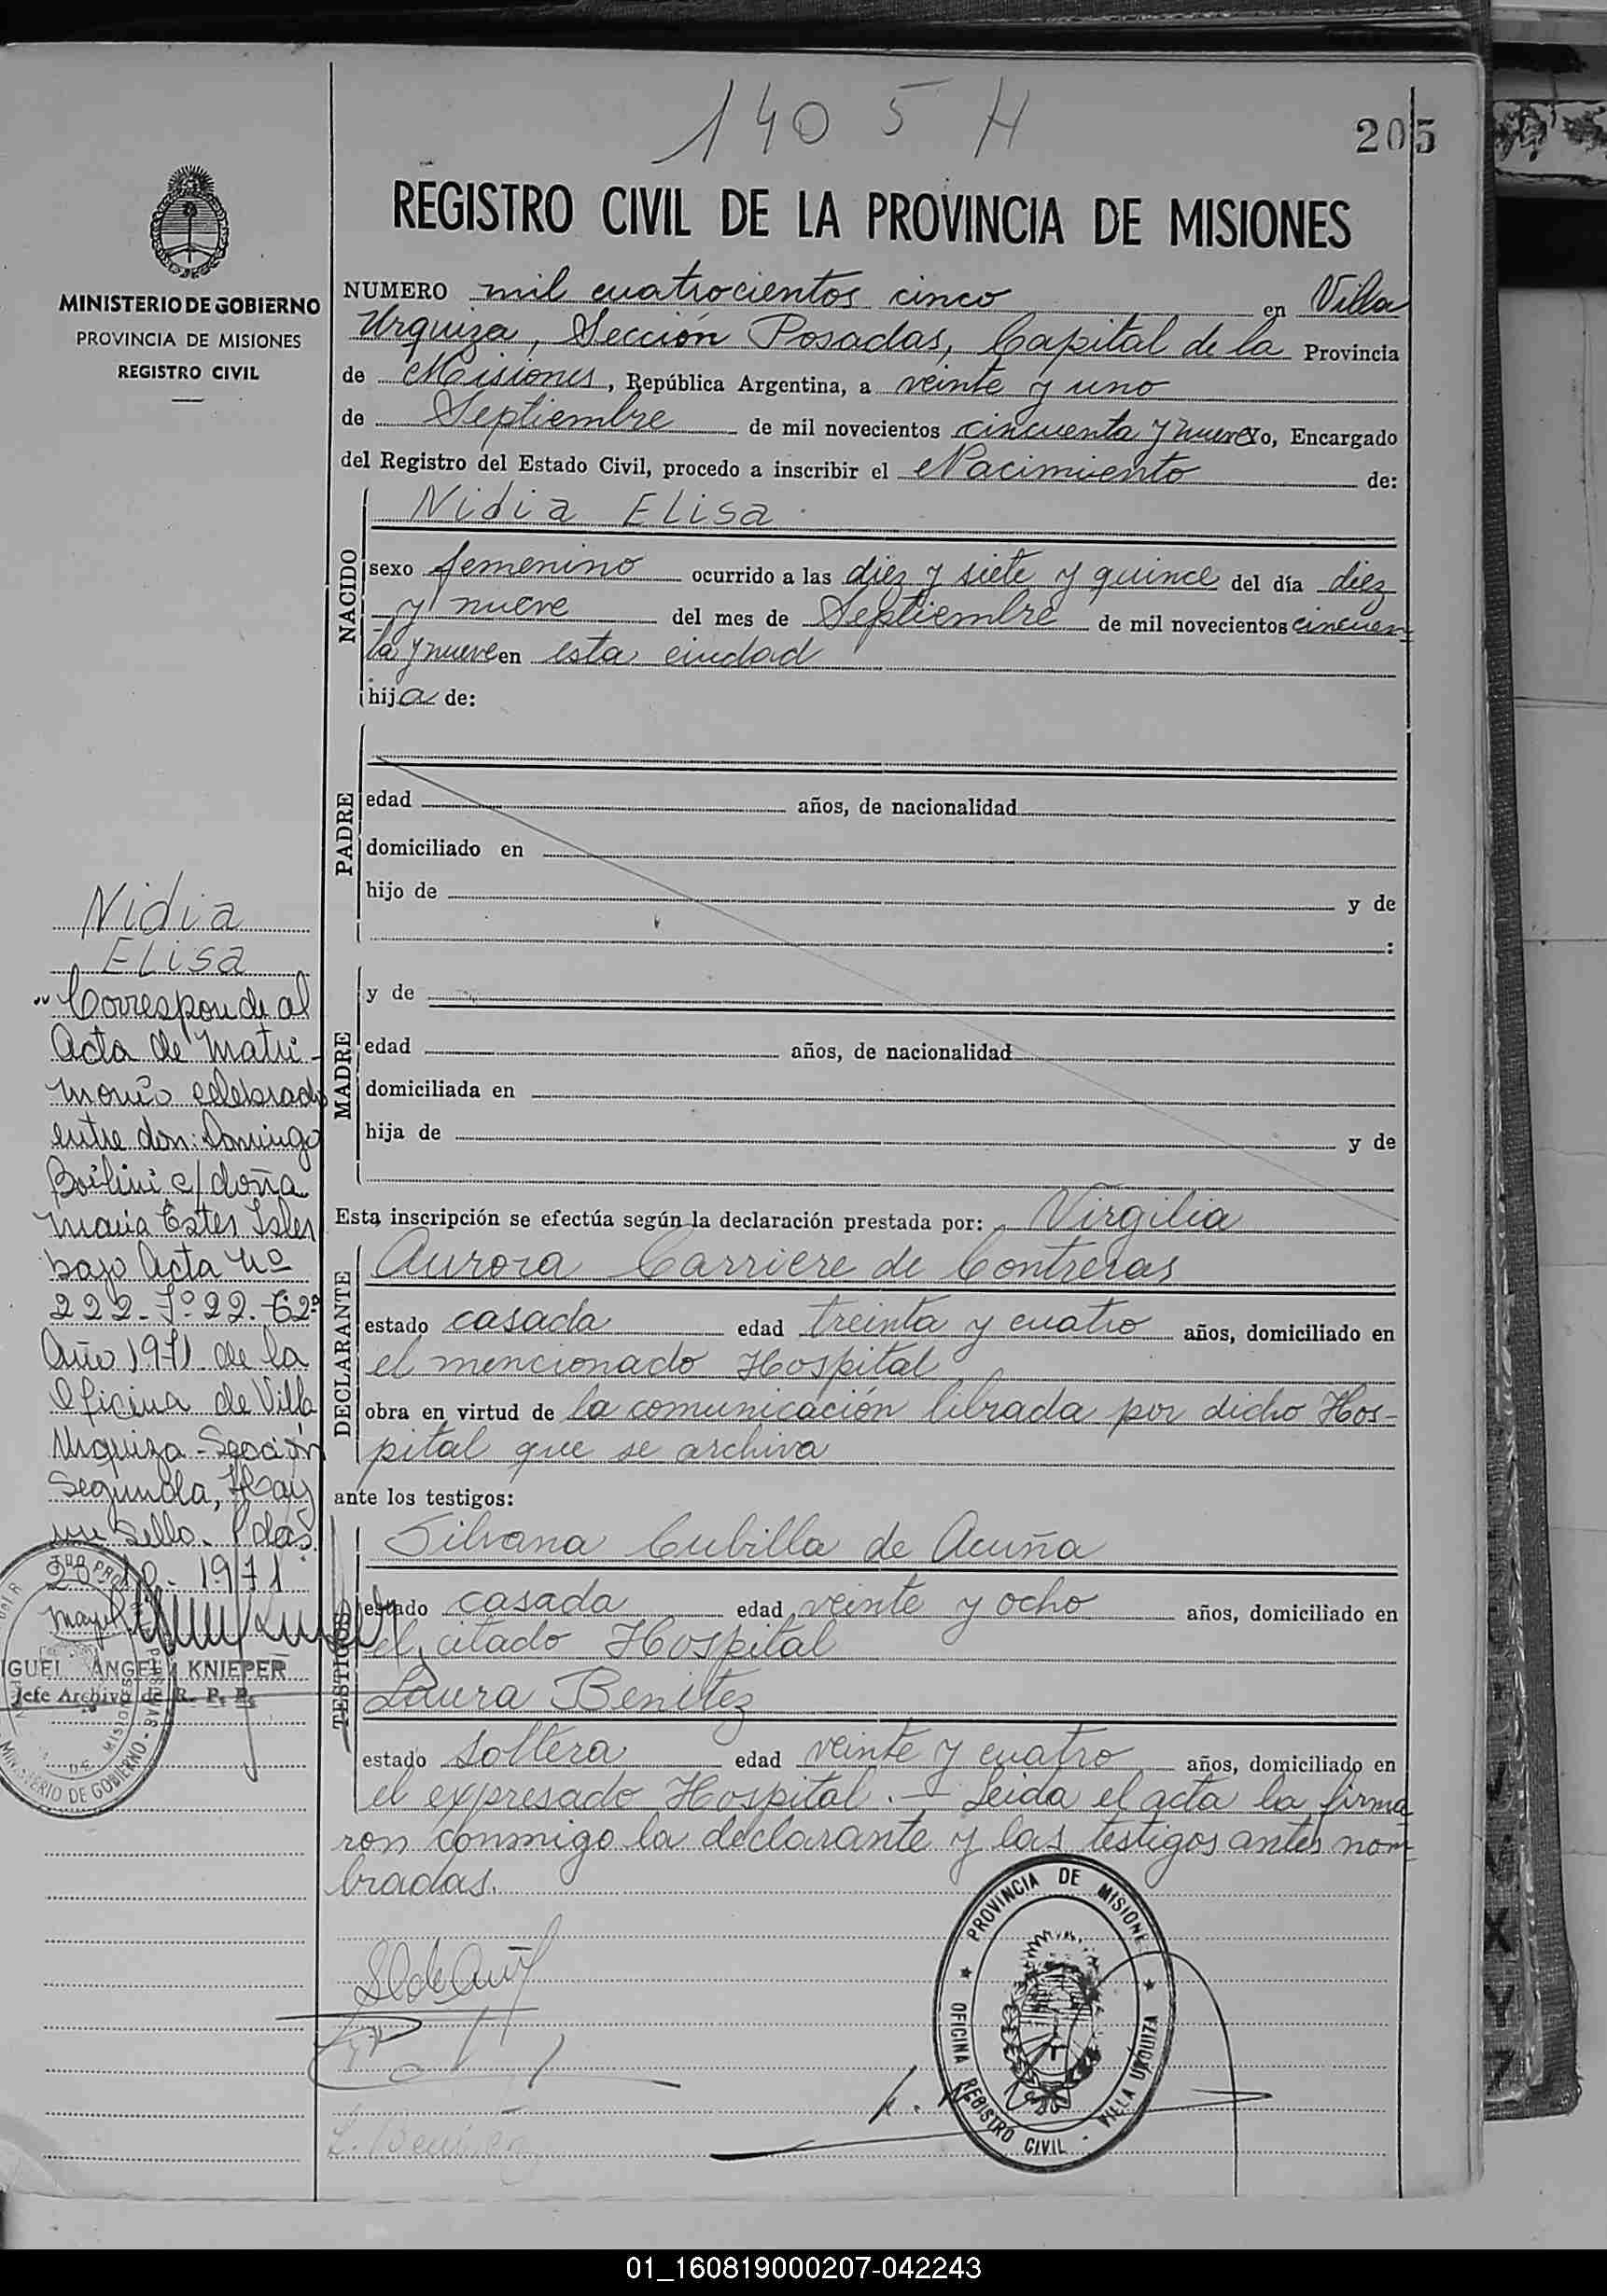 1405 H
205
REGISTRO CIVIL DE LA PROVINCIA DE MISIONES
MINISTERIO DE GOBIERNO
PROVINCIA DE MISIONES
REGISTRO CIVIL
NUMERO mil cuatrocientos cinco en Villa
Urquiza, Sección Posadas, Capital de la Provincia
de Misiones, República Argentina, a veinte y uno
de Septiembre de mil novecientos cincuenta y nueve yo, Encargado
del Registro del Estado Civil, procedo a inscribir el Nacimiento de:
NACIDO
Nidia Elisa
sexo femenino ocurrido a las diez y siete y quince del día diez
y nueve del mes de Septiembre de mil novecientos cincuen=
ta y nueve en esta ciudad
hija de:
PADRE
edad años, de nacionalidad
domiciliado en
hijo de y de
:
MADRE
y de
edad años, de nacionalidad
domiciliada en
hija de y de
Esta inscripción se efectúa según la declaración prestada por: Virgilia
DECLARANTE
Aurora Carriere de Contreras
estado casada edad treinta y cuatro años, domiciliado en
el mencionado Hospital
obra en virtud de la comunicación librada por dicho Hos-
pital que se archiva
ante los testigos:
TESTIGOS
Silvana Cubilla de Acuña
estado casada edad veinte y ocho años, domiciliado en
el citado Hospital
Laura Benitez
estado soltera edad veinte y cuatro años, domiciliado en
el expresado Hospital.- Leida el acta la firma
ron conmigo la declarante y las testigos antes nom=
bradas.
L. Benitez
PROVINCIA DE MISIONE
OFICINA REGISTRO CIVIL - VILLA URQUIZA
Nidia
Elisa
"Corresponde al
Acta de Matri-
monio celebrado
entre don: Domingo
c/ doña
Maria Ester
bajo Acta Nº
222-Fº22-Tº2º
Año 1971 de la
Oficina de Villa
Urquiza-Sección
Segunda, Hay
un Sello. Pdas.
1971
GUEL ANGEL KNIEPER
Jefe Archivo de R. P. P.
MINISTERIO DE GOBIERNO -
MISIONES
01_160819000207-042243